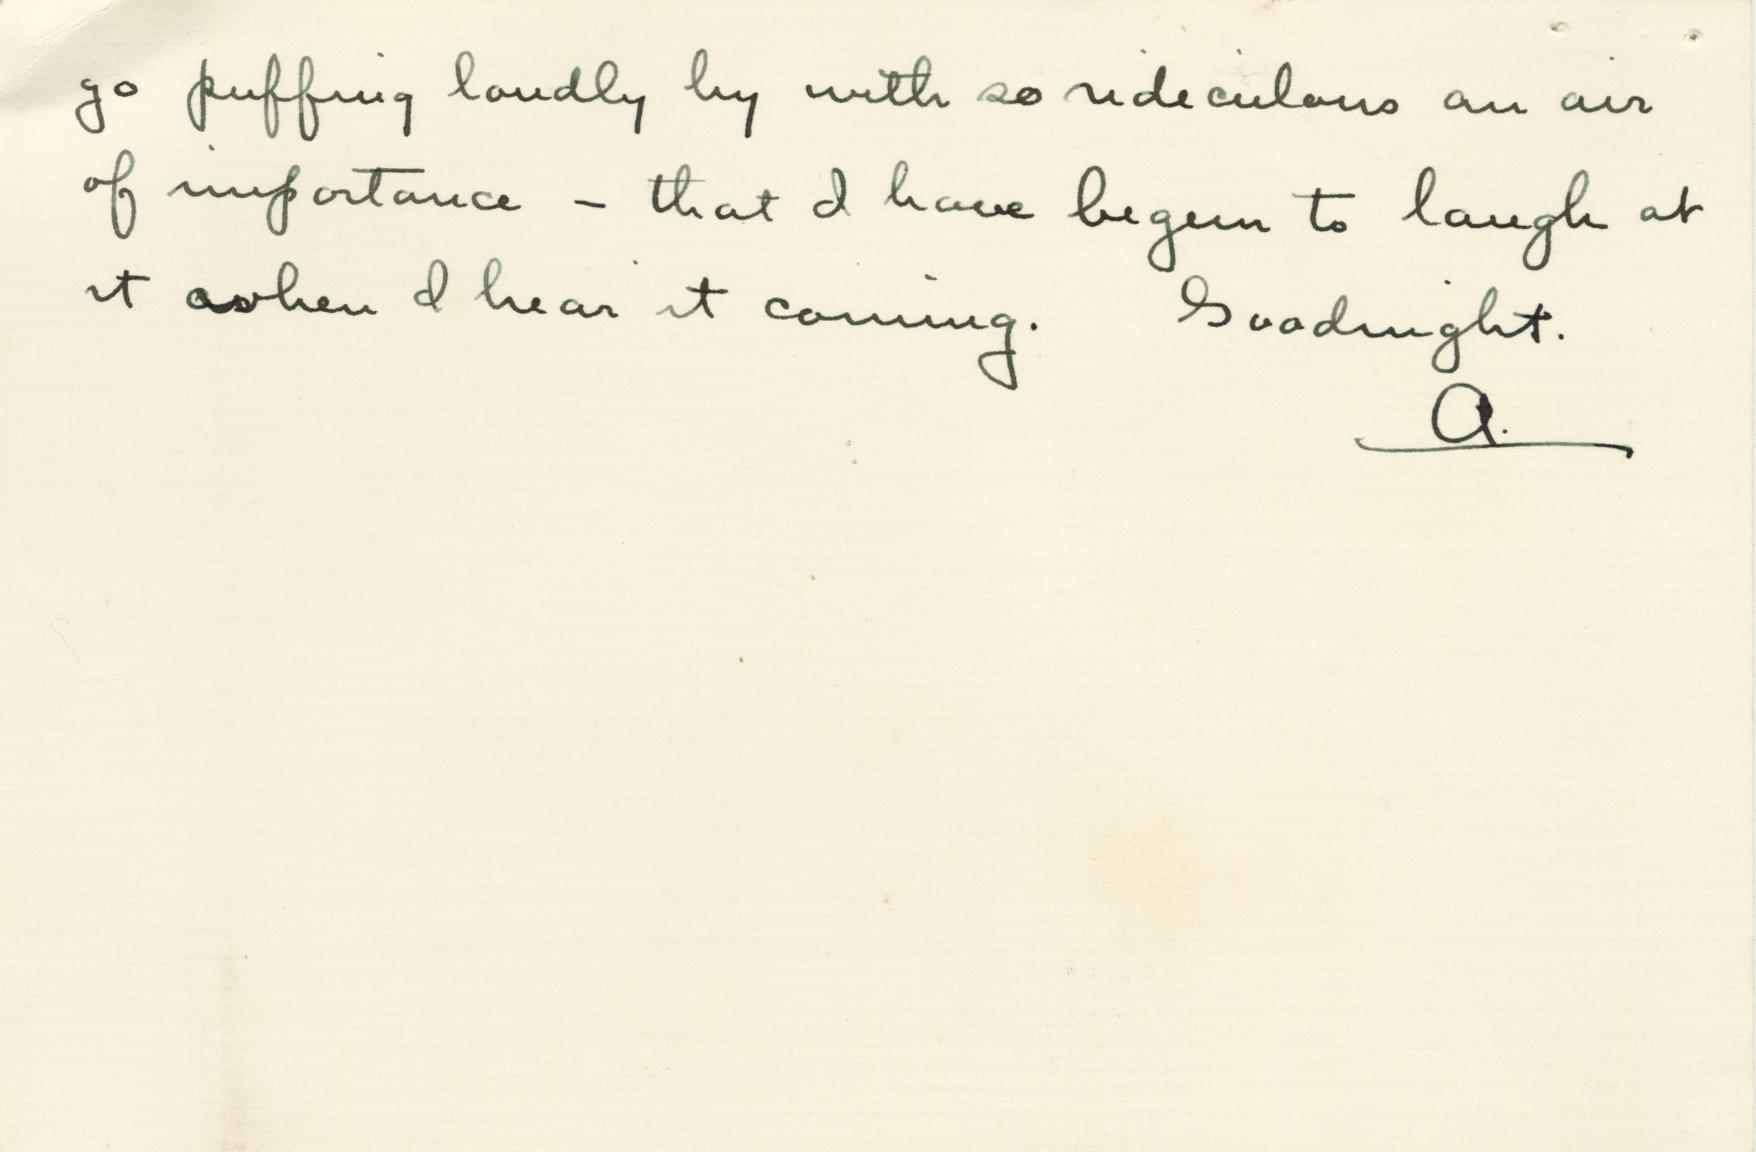 go puffing loudly by with so rideculous an air
of importance – that I have begun to laugh at
it when I hear it coming. Goodnight.
A.